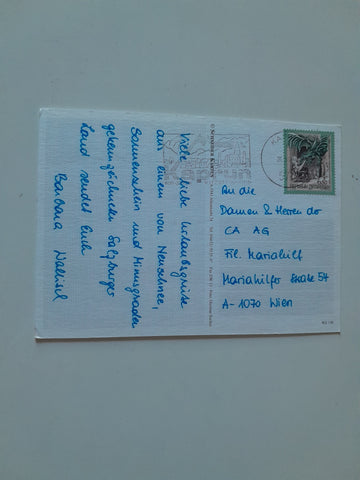 Viele liebe Urlaubsgrüße
aus einem von Neuschnee,
Sonnenschein und Minusgraden
gekennzeichneten Salzburger
Land sendet Euch
Barbara
Kaprun
An die
Damen & Herren der
CA AG
Fil. Mariahilf
Mariahilfer Straße 54
A-1070 Wien